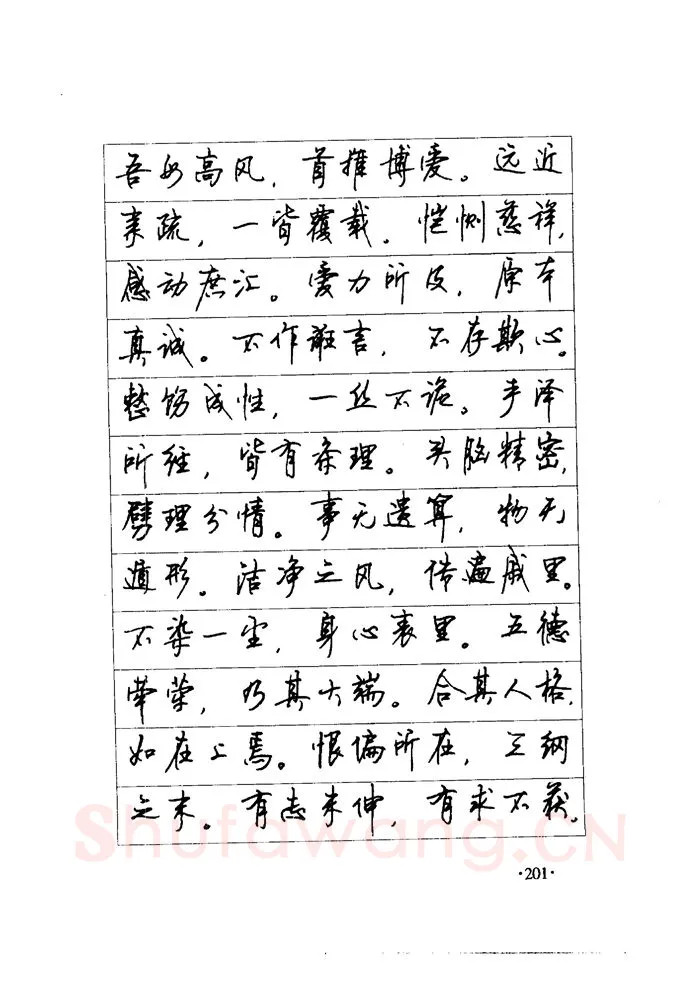 吾母高风，首推博爱。远近
亲疏，一皆覆载。恺恻慈祥，
感动庶汇。爱力所及，原本
真诚。不作诳言，不存欺心。
整饬成性，一丝不诡。手泽
所经，皆有条理。头脑精密，
劈理分情。事无遗算，物无
遁形。洁净之风，传遍戚里。
不染一尘，身心表里。五德
荦荦，乃其大端。合其人格，
如在上焉。恨偏所在，三纲
之末。有志未伸，有求不获。
Shufawang.CN
·201·